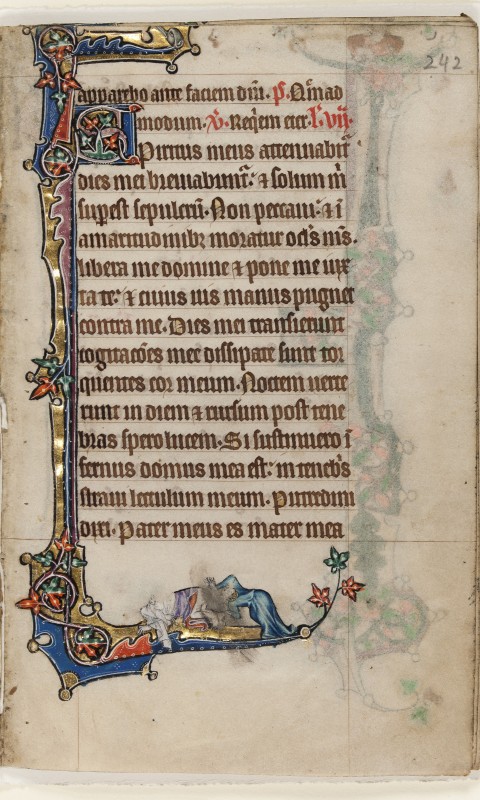 242
apparebo ante faciem dn̄i. p̃. Qm̄ad
modum. v̄. Req̄em eter. l̄. vij.
Spiritus meus attenuabit̄
dies mei breviabunt̄: ⁊ solum m̄
sup̄est sepulcrū. Non peccavi: ⁊ ī
amaritudinibꝫ moratur ocl̄s m̄s.
libera me domine ⁊ pone me iux
ta te: ⁊ cuius uis manus pugnet
contra me. Dies mei transierunt
cogitacōes mee dissipate sunt tor
quentes cor meum. Noctem uerte
runt in diem ⁊ rursum post tene
bras spero lucem. Si sustinuero ī
fernus domus mea est: in teneb̄s
straui lectulum meum. Putredini
dixi. Pater meus es mater mea